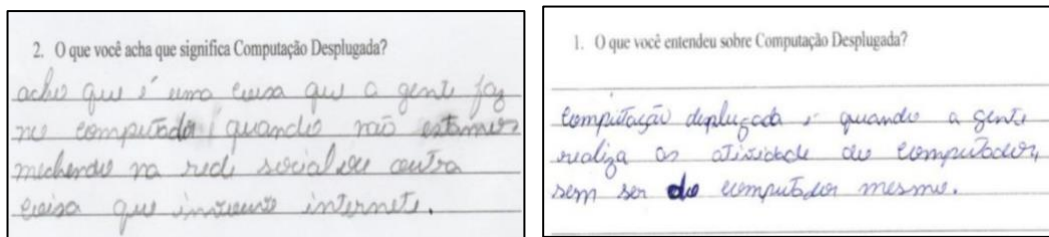 2. O que você acha que significa Computação Desplugada?
acho que é uma coisa que a gente faz
no computador quando não estamos
mechendo na rede social ou outra
coisa que internete.
1. O que você entendeu sobre Computação Desplugada?
computação deplugada é quando a gente
realiza as atividade do computador,
sem ser do computador mesmo.